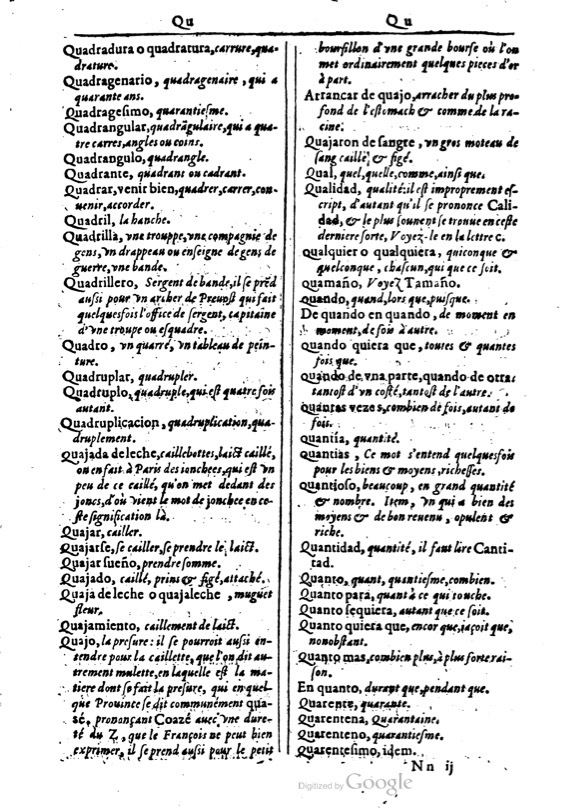 Qu
Quadradura o quadratura, carrure, qua-
drature.
Quadragenario, quadragenaire, qui a
quarante ans.
Quadragesimo, quarantiesme.
Quadrangular, quadrãgulaire, qui a qua-
tre carres, angles ou coins.
Quadrangulo, quadrangle.
Quadrante, quadrant ou cadrant.
Quadrar, venir bien, quadrer, carrer, con-
uenir, accorder.
Quadril, la hanche.
Quadrilla, vne trouppe, vne compagnie de
gens, vn drappeau ou enseigne de gens de
guerre, vne bande.
Quadrillero, Sergent de bande, il se prẽd
aussi pour vn archer de Preuost qui fait
quelquesfois l'office de sergent, capitaine
d'vne troupe ou esquadre.
Quadro, vn quarré, vn tableau de pein-
ture.
Quadruplar, quadrupler.
Quadruplo, quadruple, qui est quatre fois
autant.
Quadruplicacion, quadruplication, qua-
druplement.
Quajada de leche, caillebottes, laict caillé,
on en fait à Paris des ionchees, qui est vn
peu de ce caillé, qu'on met dedans des
joncs, d'où vient le mot de jonchee en ce-
ste signification là.
Quajar, cailler.
Quajarse, se cailler, se prendre le laict.
Quajar sueño, prendre somme.
Quajado, caillé, prins & figé, attaché.
Quaja de leche o quajaleche, muguet
fleur.
Quajamiento, caillement de laict.
Quajo, la presure: il se pourroit aussi en-
tendre pour la caillette, que l'on dit au-
trement mulette, en laquelle est la ma-
tiere dont se fait la presure, qui en quel-
que Prouince se dit communément qua-
sé, prononçant Coazé auec vne dure-
té du Z, que le François ne peut bien
exprimer, il se prend aussi pour le petit
Qu
boursillon d'vne grande bourse où l'on
met ordinairement quelques pieces d'or
à part.
Arrancar de quajo, arracher du plus pro-
fond de l'estomach & comme de la ra-
cine.
Quajaron de sangre, vn gros moteau de
sang caillé, & figé.
Qual, quel, quelle, comme, ainsi que.
Qualidad, qualité: il est improprement es-
cript, d'autant qu'il se prononce Cali-
dad, & le plus souuent se trouue en ceste
derniere sorte, Voyez-le en la lettre c.
Qualquier o qualquiera, quiconque &
quelconque, chascun, qui que ce soit.
Quamaño, Voyez Tamaño.
Quando, quand, lors que, puisque.
De quando en quando, de moment en
moment, de fois à autre.
Quando quiera que, toutes & quantes
fois que.
Quando de vna parte, quando de otra:
tantost d'vn costé, tantost de l'autre.
Quantas vezes, combien de fois, autant de
fois.
Quantia, quantité.
Quantias, Ce mot s'entend quelquesfois
pour les biens & moyens, richesses.
Quantioso, beaucoup, en grand quantité
& nombre. Item, vn qui a bien des
moyens & de bon reuenu, opulent &
riche.
Quantidad, quantité, il faut lire Canti-
tad.
Quanto, quant, quantiesme, combien.
Quanto para, quant à ce qui touche.
Quanto sequiera, autant que ce soit.
Quanto quiera que, encor que, jaçoit que,
nonobstant.
Quanto mas, combien plus, à plus forte rai-
son.
En quanto, durant que, pendant que.
Quarente, quarante.
Quarentena, Quarantaine.
Quarenteno, quarantiesme.
Quarentesimo, idem.
Nn ij
Digitized by Google